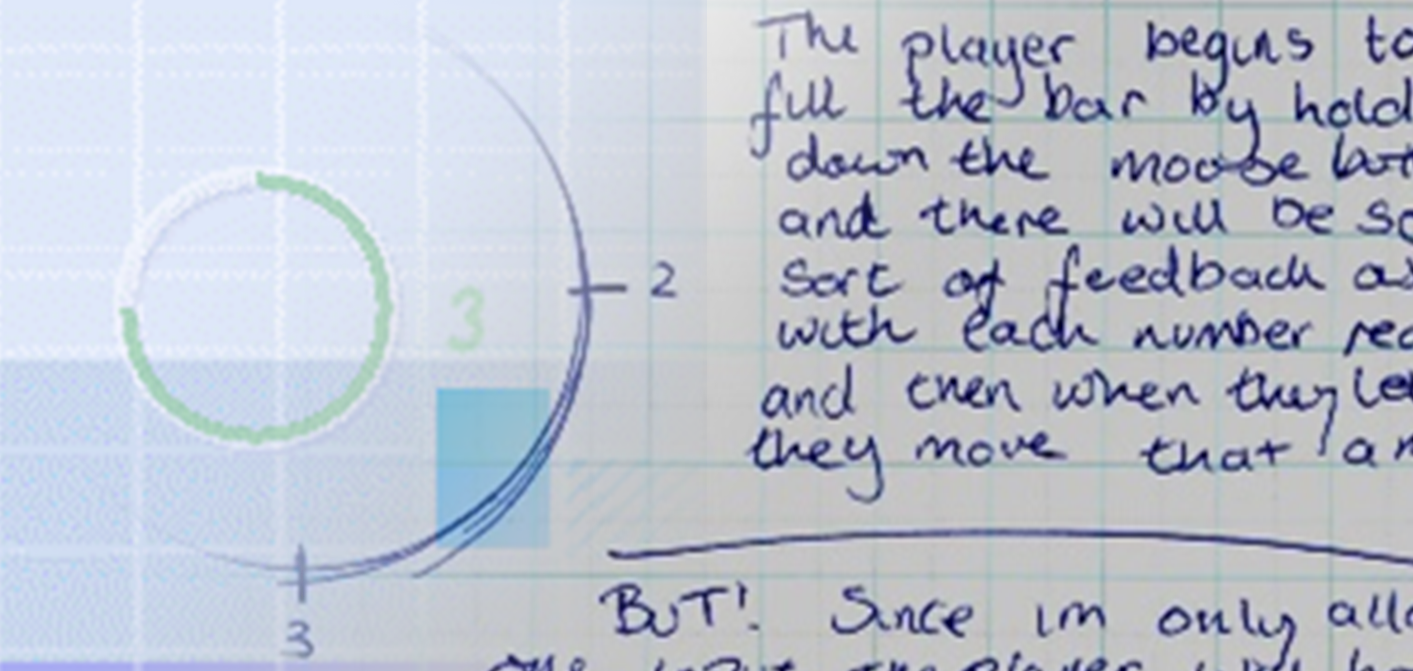 The player begins to
fill the bar by hold
down the mouse but
and there will be so
sort of feedback as
with each number rea
and then when they let
they move that am
2
3
3
BUT! Since im only allo
one input the player